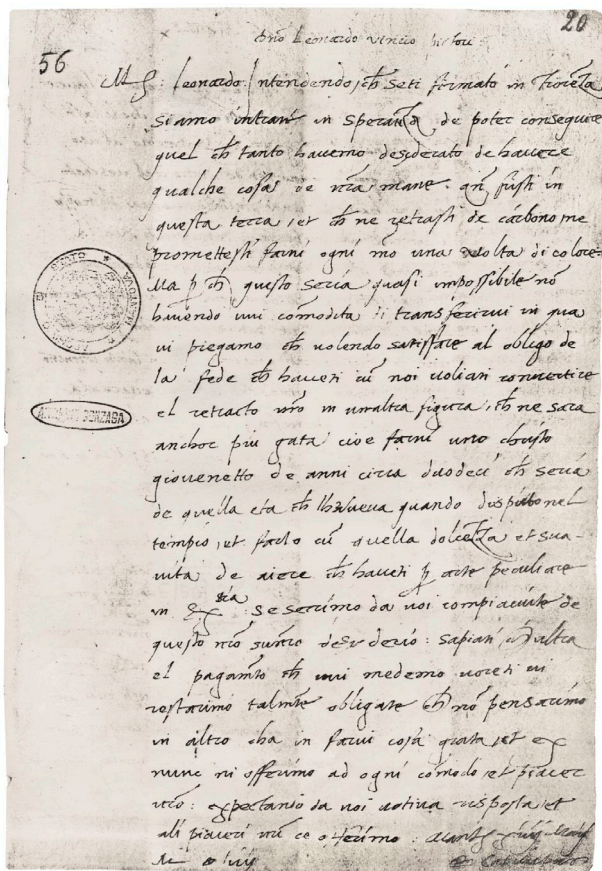 56
20
Leonardo vincio pictori
M S. Leonardo Intendendo ch seti firmato in Fiorenza
siamo intrati in speranza de poter conseguire
quel ch tanto havemo desyderato de havere
qualche cosa de vra mane. qñ fusti in
questa terra, et ch ne retrasti de carbono, ne
promettesti farni ogni mō una volta di colore
Ma p ch questo seria quasi impossibile nō
havendo vui cōmodita di transferirvi in qua
vi piegamo ch volendo satisfare al obligo de
la fede ch haveti cū noi voliati convertire
el retracto nrō in unaltra figura, ch ne sara
anchor piu gata cioe farni uno christo
giovenetto de anni circa duodeci ch seria
de quella eta ch lhaveva quando disputo nel
tempio, et facto cū quella dolceza et sua-
vita de aiere ch haveti p arte peculiare
in ex.tia se serimo da voi compiaciute de
questo nrō summo desyderio: sapiati ch ultra
el pagamto ch vui medemo voreti vi
restarimo talmte obligate ch nō pensarimo
in altro cha in farvi cosa grata, et ex
nunc ni offerimo ad ogni cōmodo et piacer
vrō: expectando da voi votiva risposta, et
ali piaceri vri ce offerimo: Mant
M
ARCHIVIO GONZAGA